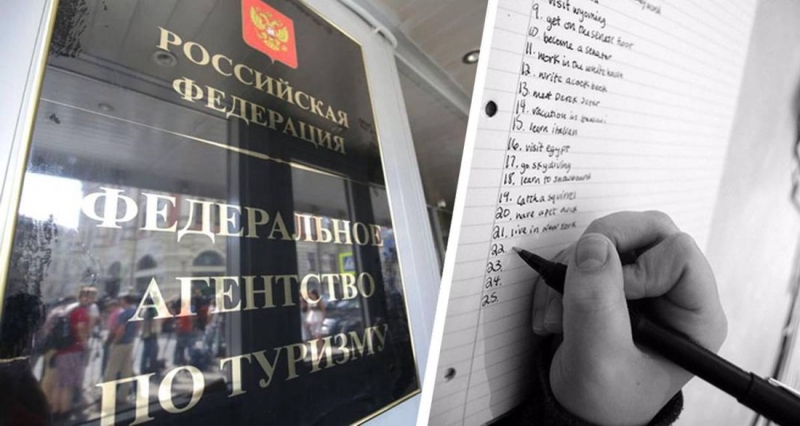 РОССИЙСКАЯ
ФЕДЕРАЦИЯ
ФЕДЕРАЛЬНОЕ
АГЕНТСТВО
ПО ТУРИЗМУ
9. get on the senate floor
10. become a senator
11. work in the white house
12. write a cook book
13. meet Derek Jeter
14. vacation in
15. learn italian
16. visit Egypt
17. go skydiving
18. learn to snowboard
19. catch a squirrel
20. have a pet
21. live in New York
22
23.
24.
25.